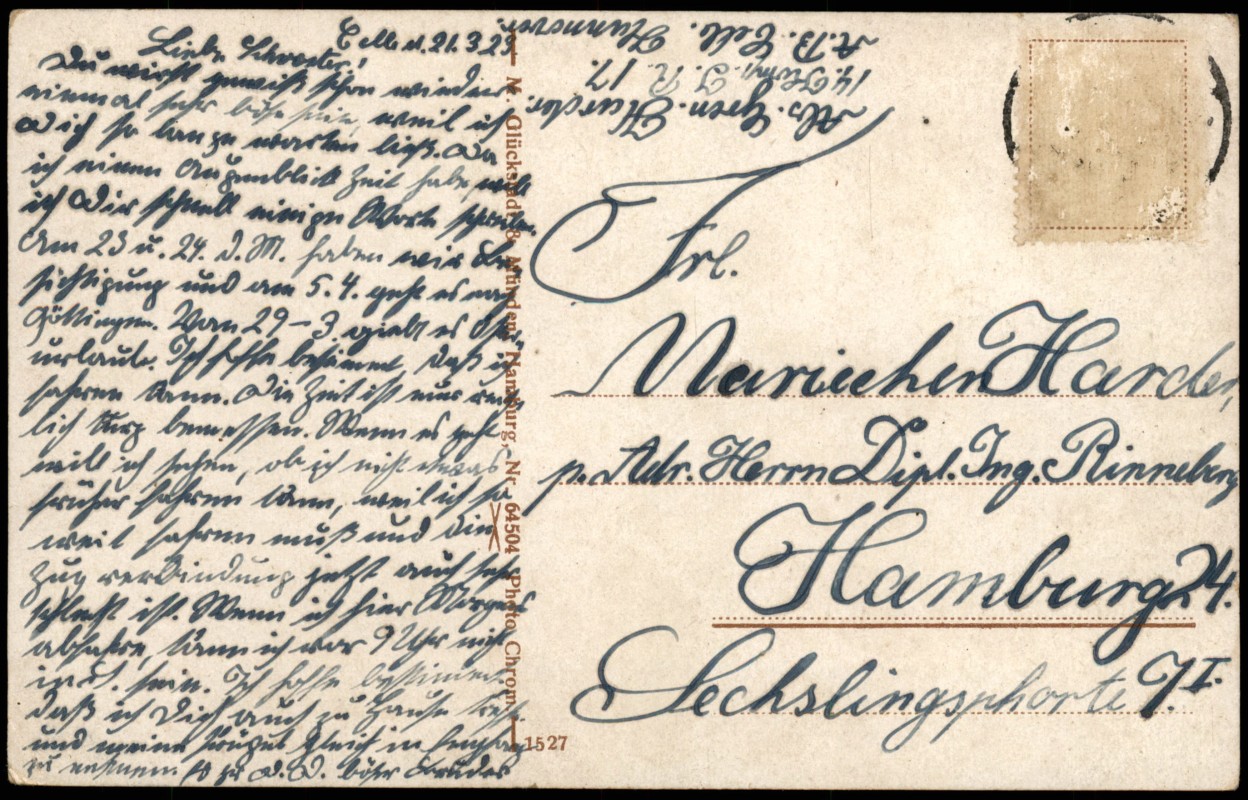 Celle d. 21.3.23.
Liebe Schwester!
Du wirst gewiß schon wieder
einmal sehr böse sein, weil ich
Dich so lange warten ließ. Da
ich einen Augenblick Zeit habe, will
ich Dir schnell einige Worte schreiben.
Am 23 u. 24. d. M. haben wir Be-
sichtigung und am 5.4. geht es nach
Göttingen. Vom 29-3 giebt es Oster-
urlaub. Ich hoffe bestimmt, daß ich
fahren kann. Die Zeit ist nur reich-
lich kurz bemessen. Wenn es geht
will ich sehen, ob ich nicht etwas
früher fahren kann, weil ich so
weit fahren muß und die
Zugverbindung jetzt auch sehr
schlecht ist. Wenn ich hier Morgens
abfahre, kann ich vor 9 Uhr nicht
sein. Ich hoffe bestimmt
daß ich Dich auch zu Hause treffe
und meine Prügel gleich in Empfang
zu nehmen. böser Bruder
M. Glückstadt & Münden, Hamburg, Nr. 64504 Photo Chrom.
1527
Abs. Gren. Harder.
14. Komp. I. R. 17.
A.B. Celle. Hannover.
Frl.
Mariechen Harder,
p. Adr. Herrn Dipl. Ing. Rinneberg
Hamburg 24.
Sechslingsphorte 7I.